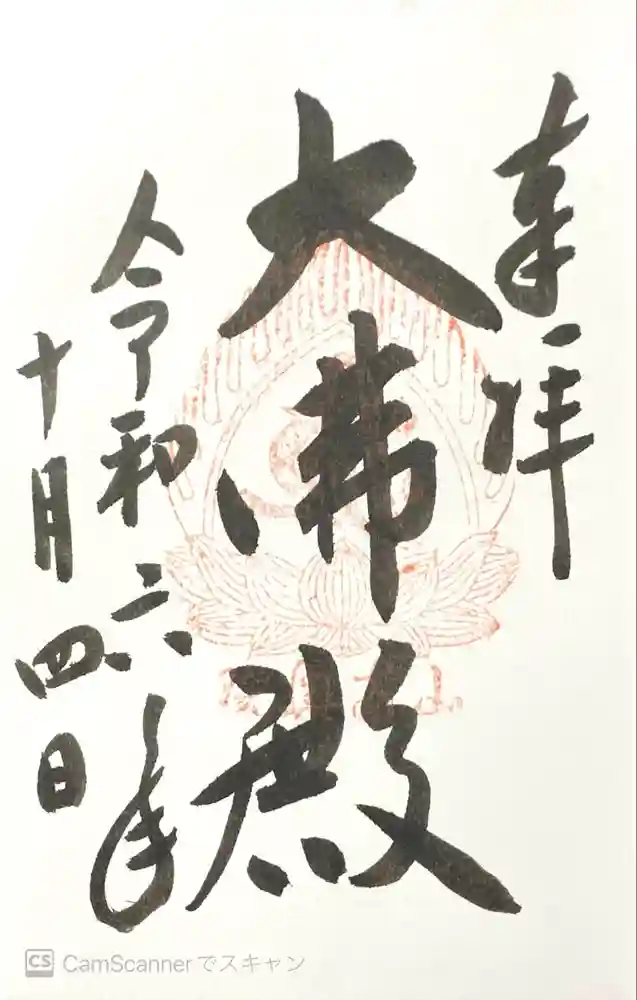 奉拝
大佛殿
令和六年
十月四日
CamScannerでスキャン